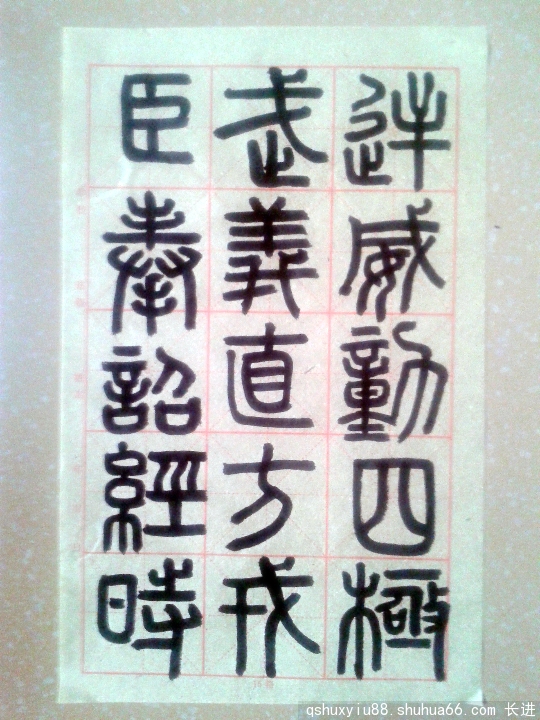 逆威動四極
武義直方戎
臣奉詔經時
qshuxyiu88.shuhua66.com 长进